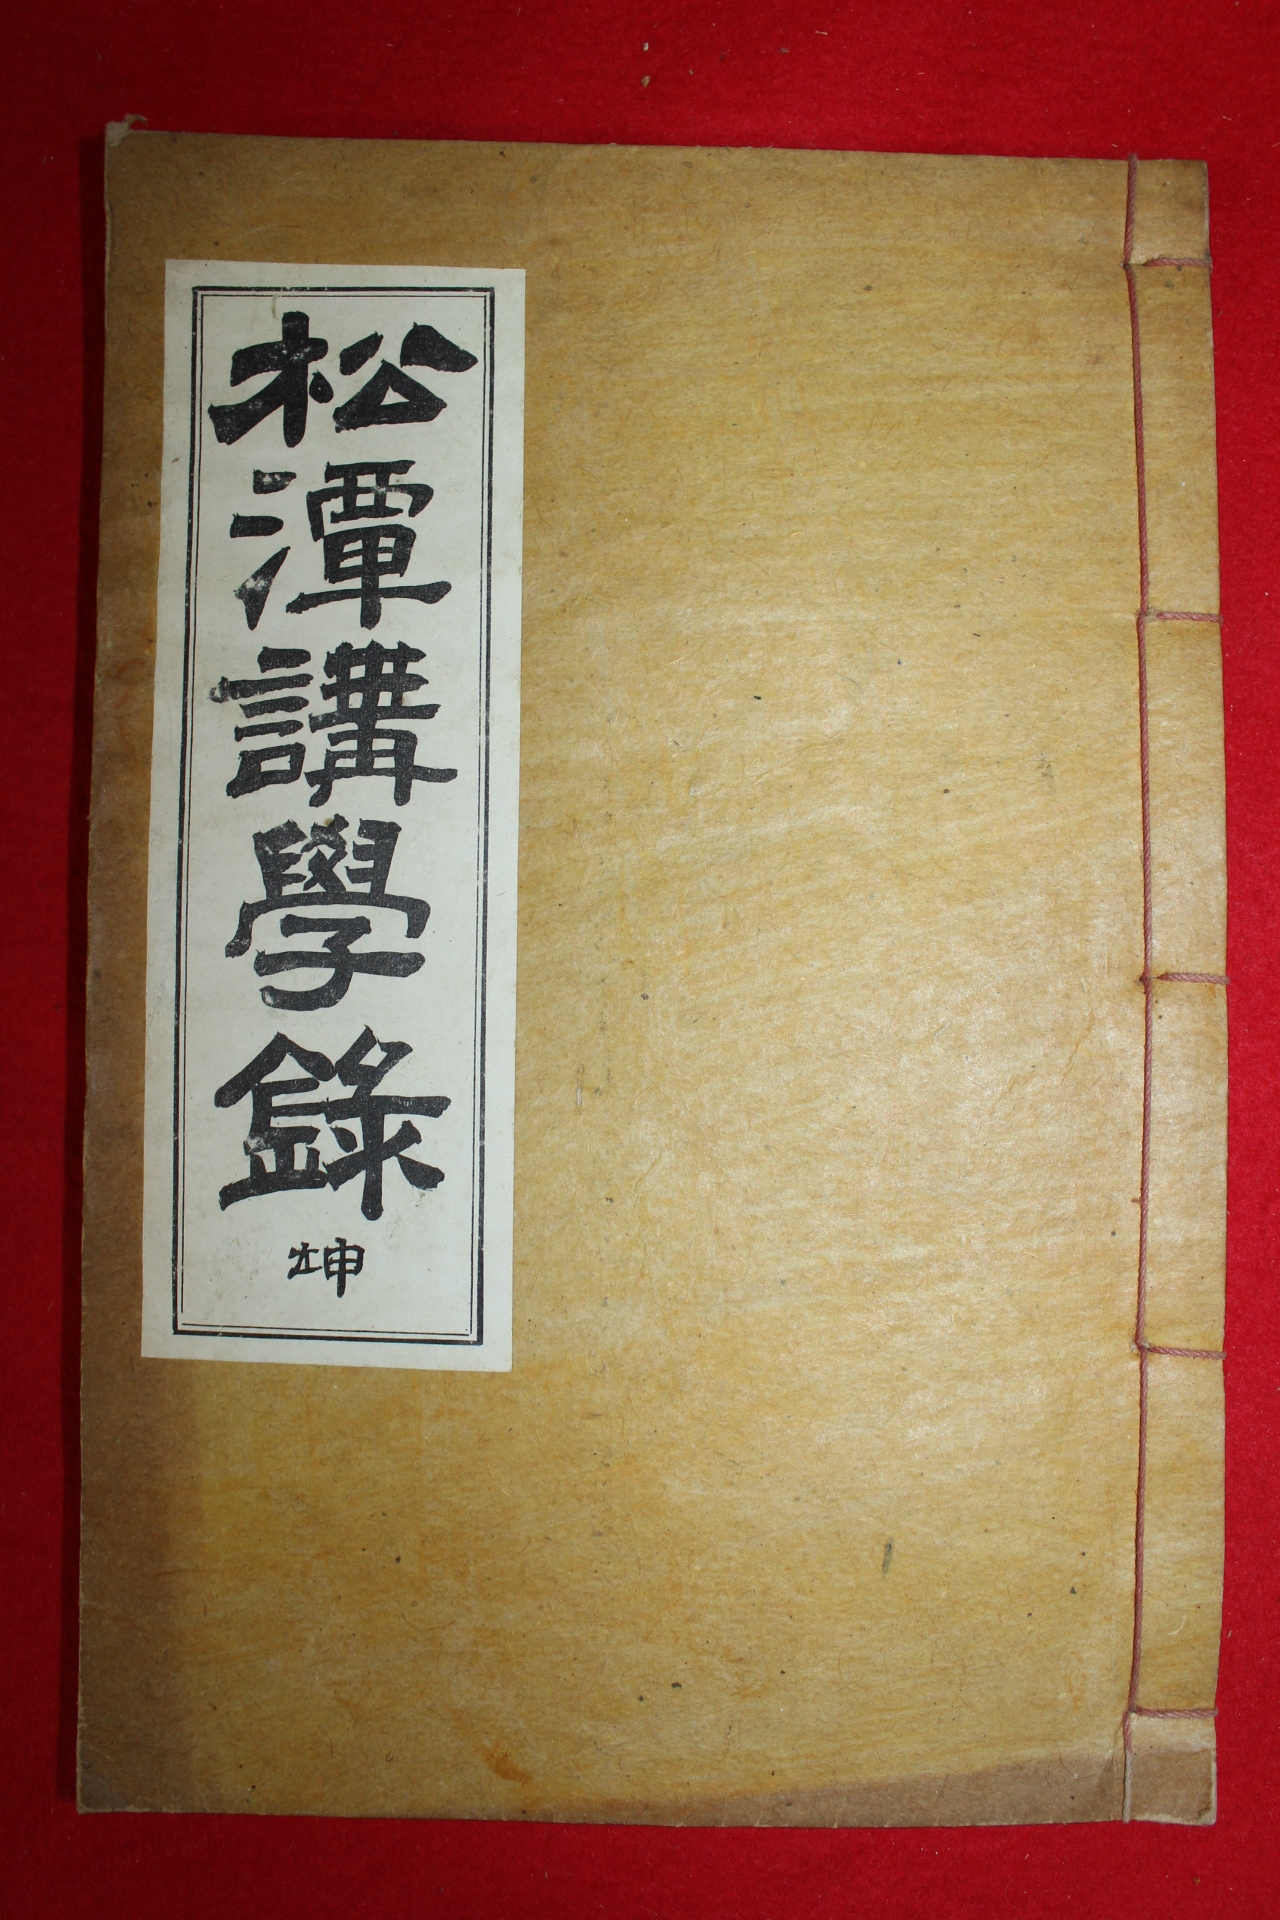 松潭講學錄 坤